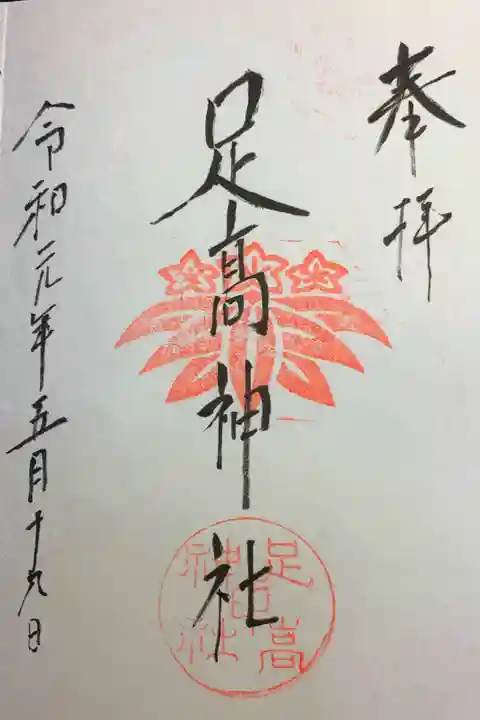 奉拝
足高神社
令和元年五月十九日
足高
神社